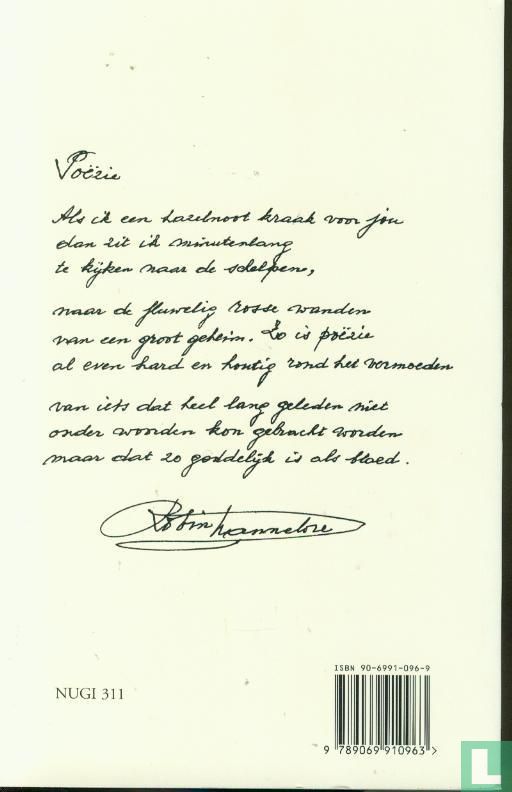 Poëzie
Als ik een hazelnoot kraak voor jou
dan zit ik minutenlang
te kijken naar de schelpen,
naar de fluwelig rosse wanden
van een groot geheim. Zo is poëzie
al even hard en houtig rond het vermoeden
van iets dat heel lang geleden niet
onder woorden kon gebracht worden
maar dat zo goddelijk is als bloed.
Robin Hannelore
ISBN 90-6991-096-9
NUGI 311
9 789069 910963 >
L